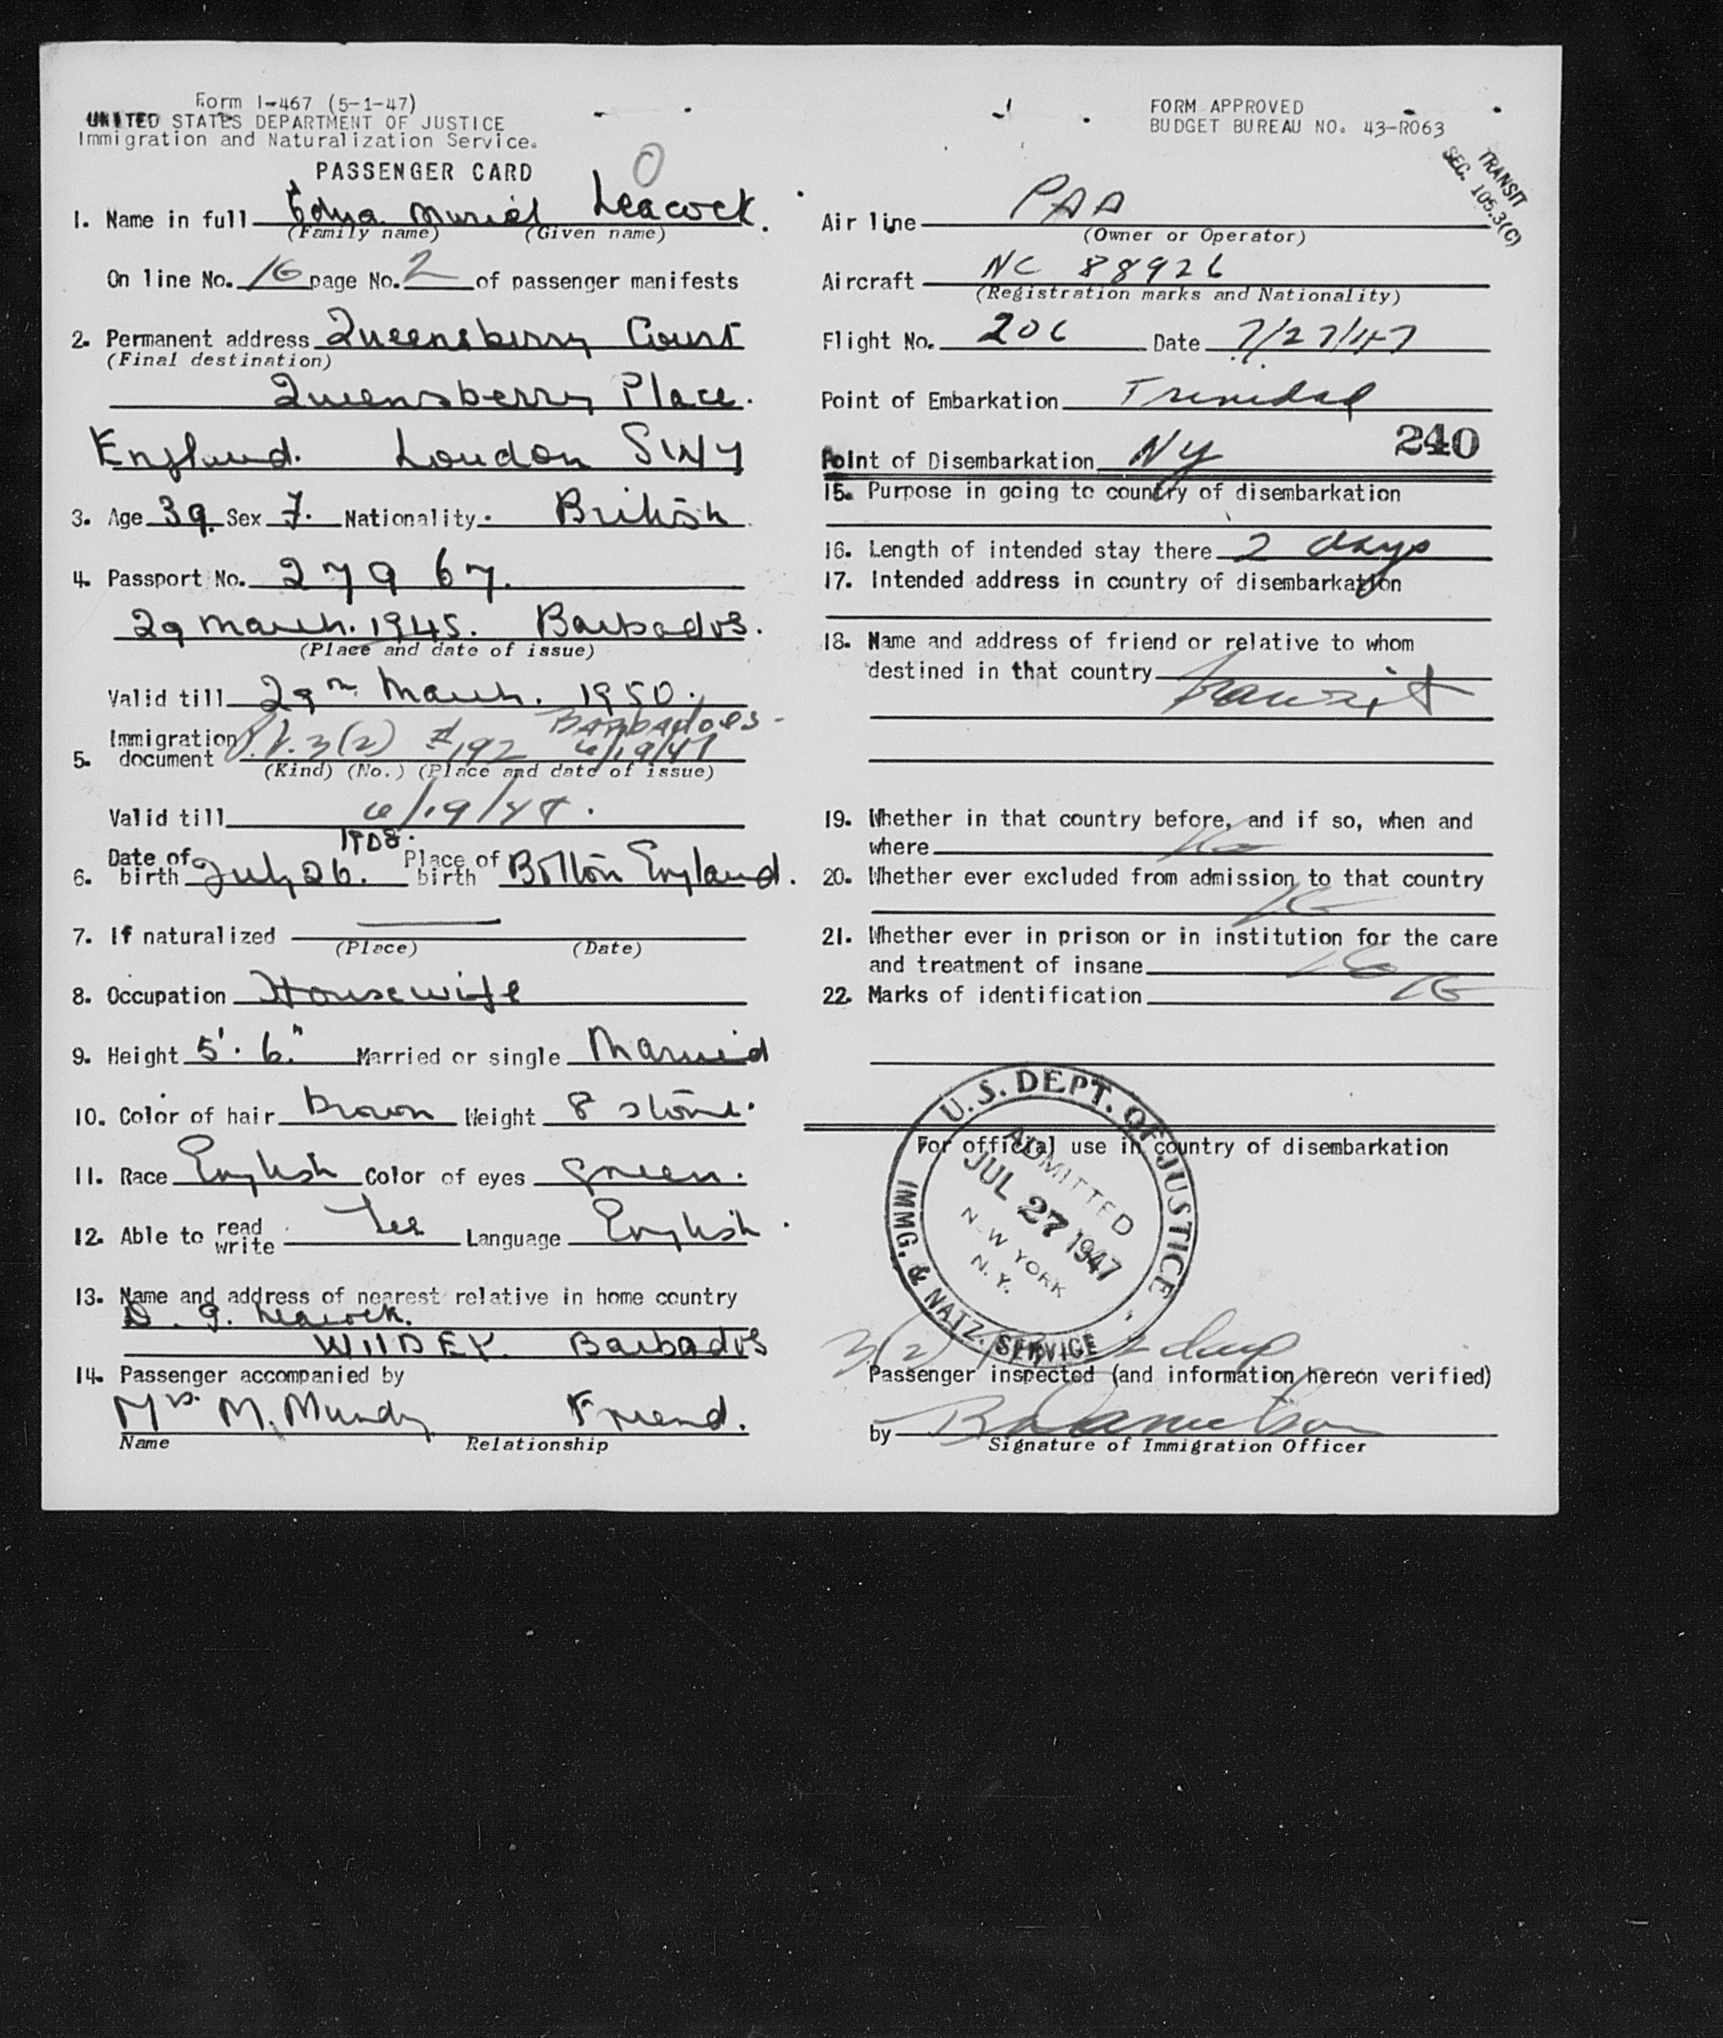 Form I-467 (5-1-47)
UNITED STATES DEPARTMENT OF JUSTICE
Immigration and Naturalization Service.
PASSENGER CARD
0
1. Name in full Edna Muriel Leacock.
(Family name) (Given name)
On line No. 16 page No. 2 of passenger manifests
2. Permanent address Queensberry Court
(Final destination)
Queensberry Place.
England. London SW7
3. Age 39. Sex F. Nationality. British
4. Passport No. 27967.
29 March. 1945. Barbados.
(Place and date of issue)
Valid till 29th March. 1950.
Barbadoes-
5. Immigration document P.V. 3(2) #192 6/19/47
(Kind) (No.) (Place and date of issue)
Valid till 6/19/48.
1908.
6. Date of birth July 26. Place of birth Bolton England.
7. If naturalized
(Place) (Date)
8. Occupation Housewife
9. Height 5'. 6." Married or single Married
10. Color of hair brown Weight 8 stone.
11. Race English Color of eyes green.
12. Able to read write Yes Language English
13. Name and address of nearest relative in home country
D. G. Leacock.
WILDEY. Barbados
14. Passenger accompanied by
Mrs. M. Mundy Friend.
Name Relationship
FORM APPROVED
BUDGET BUREAU NO. 43-R063
TRANSIT
SEC. 105.3(C)
Air line PAA
(Owner or Operator)
Aircraft NC 88926
(Registration marks and Nationality)
Flight No. 206 Date 7/27/47
Point of Embarkation Trinidad
240
Point of Disembarkation NY
15. Purpose in going to country of disembarkation
16. Length of intended stay there 2 days
17. Intended address in country of disembarkation
18. Name and address of friend or relative to whom
destined in that country transit
19. Whether in that country before, and if so, when and
where No
20. Whether ever excluded from admission to that country
No
21. Whether ever in prison or in institution for the care
and treatment of insane No
22. Marks of identification No
For official use in country of disembarkation
U.S. DEPT. OF JUSTICE
IMMG. & NATZ. SERVICE
ADMITTED
JUL 27 1947
NEW YORK
N.Y.
3(2) 2 days
Passenger inspected (and information hereon verified)
by
Signature of Immigration Officer